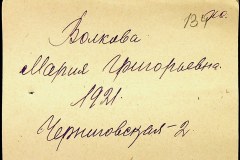 Волкова
Мария Григорьевна.
1921.
Черниговская-2